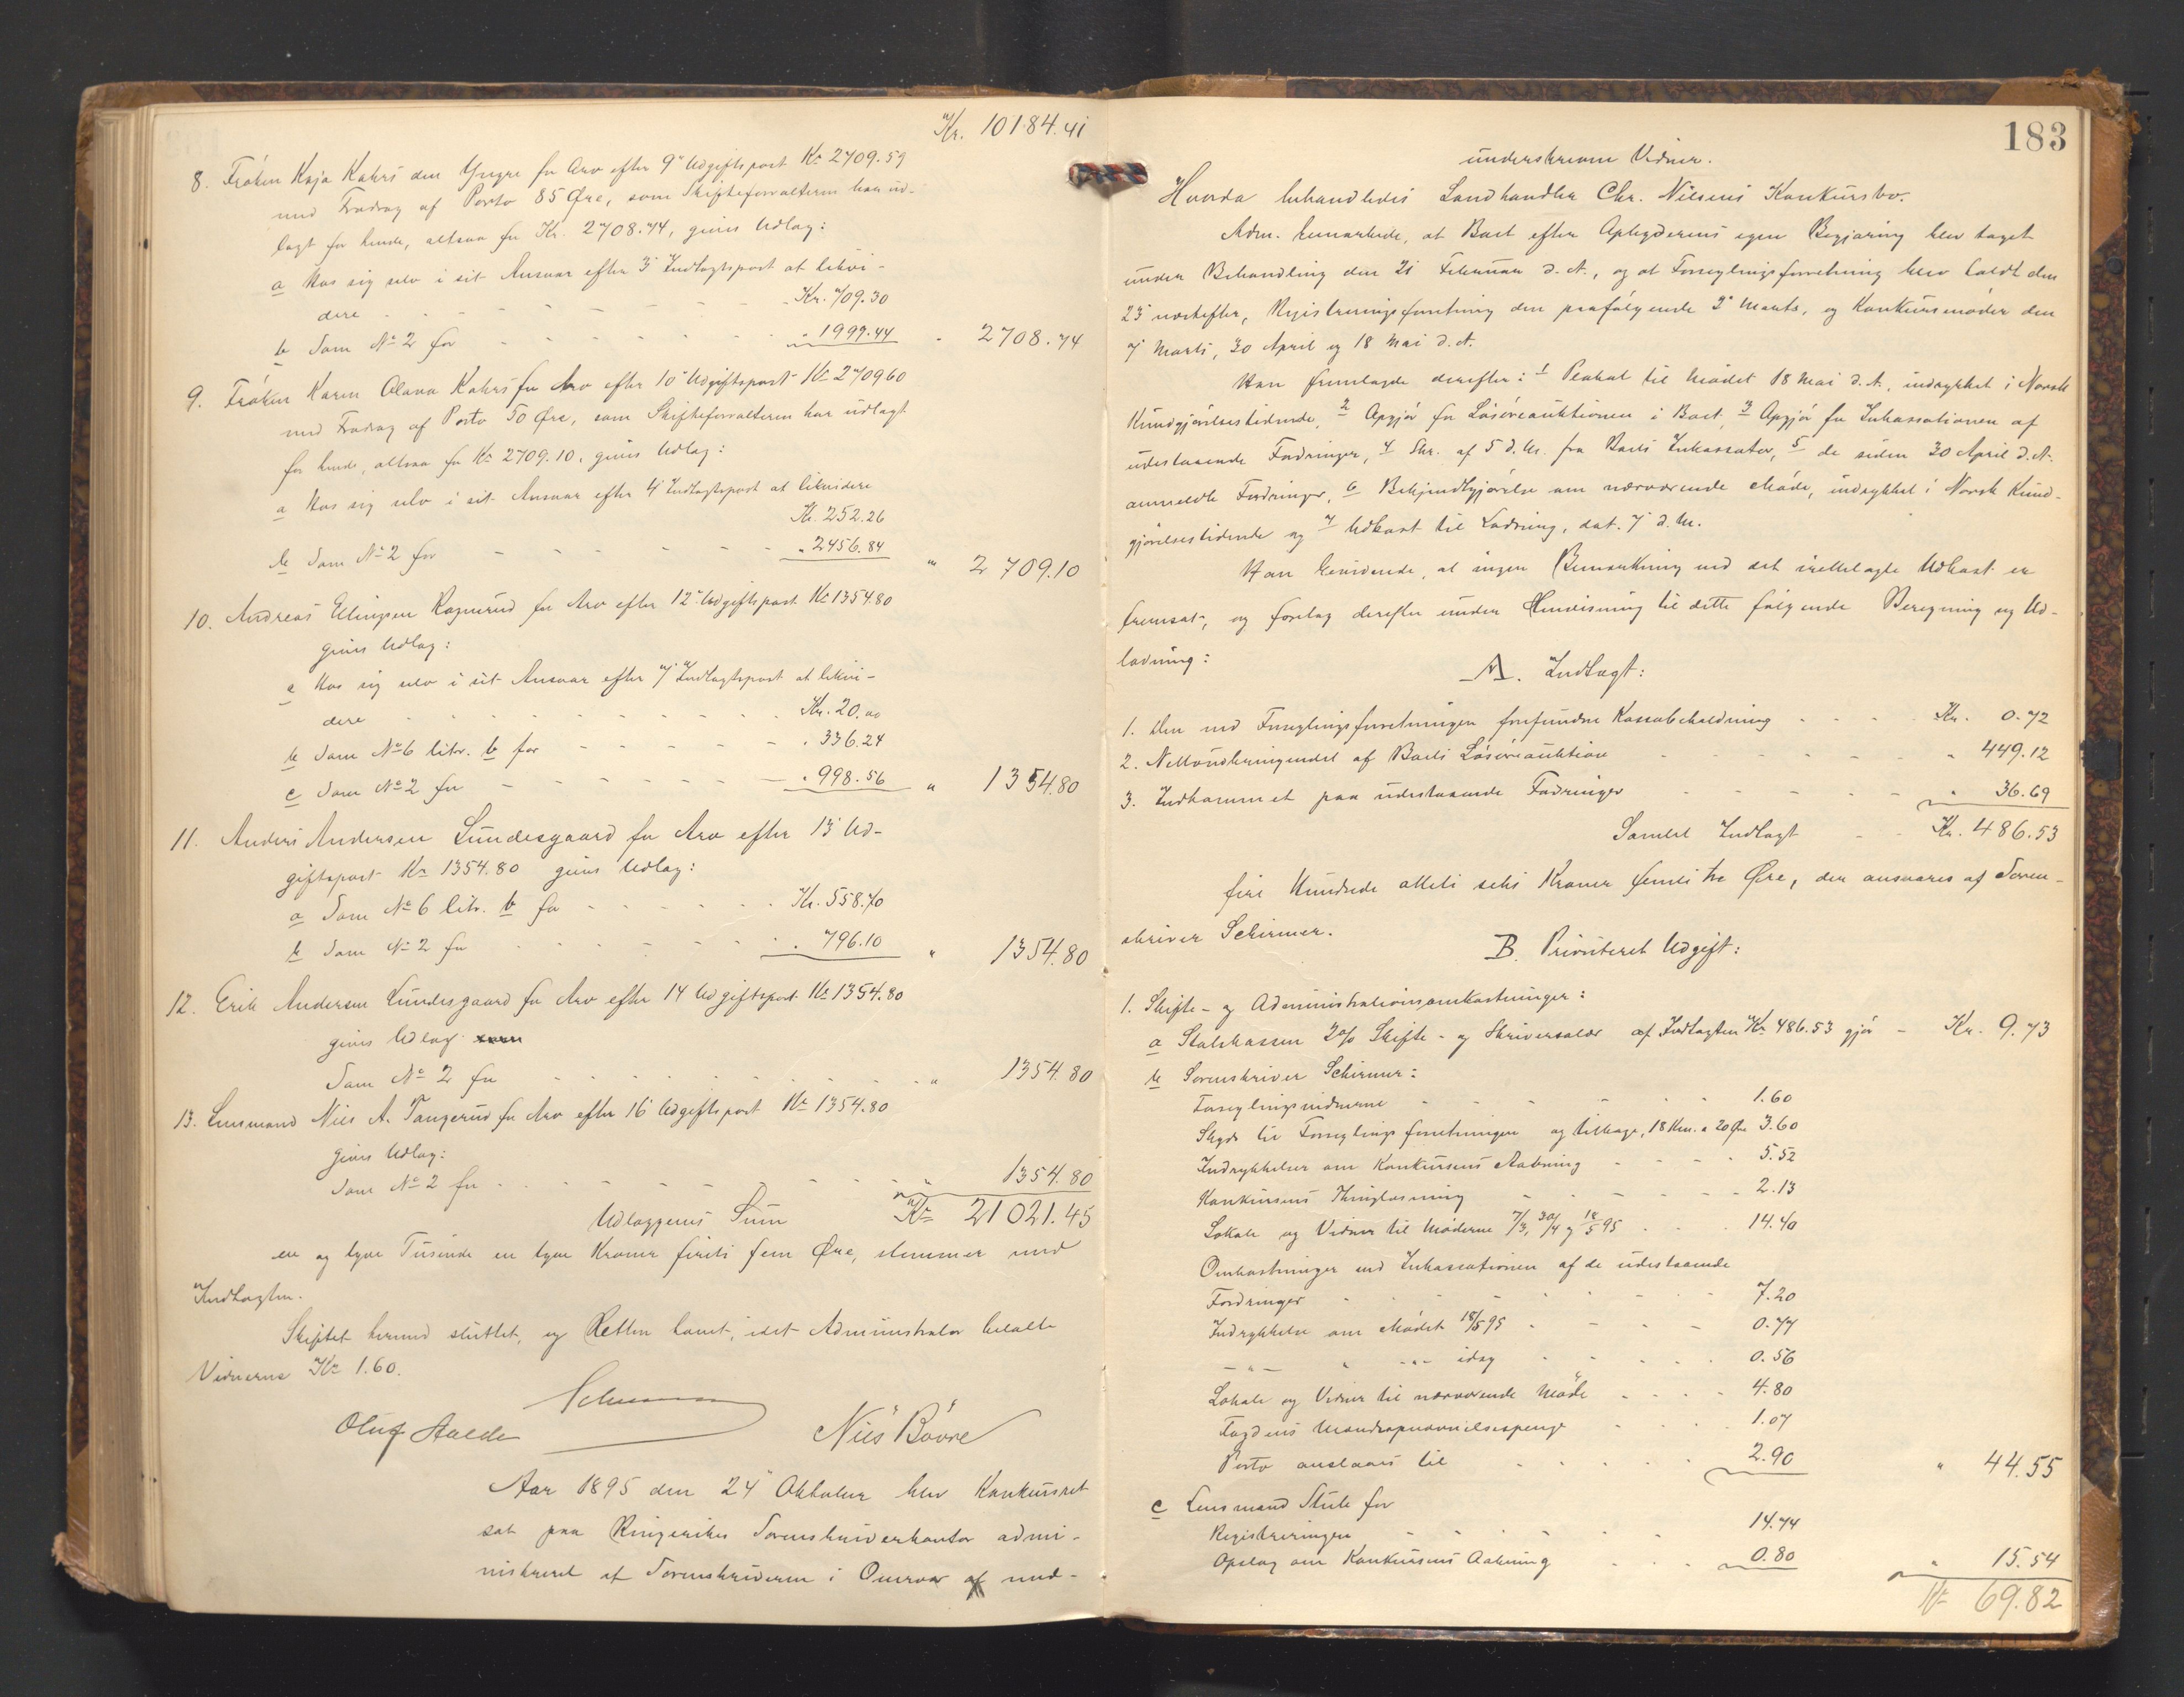 Kr. 10184.41
8. Frøken Kaja Kahrs den Yngre for Arv efter 9' Udgiftspost Kr 2709.59
med Fradrag af Porto 85 Øre, som Skifteforvalteren har ud-
lagt for hende, altsaa for Kr. 2708.74, gives Udlæg:
a Hos sig selv i sit Ansvar efter 3' Indtægtspost at likvi-
dere - - - - - Kr. 709.30
b Som No 2 for - - - - - „ 1999.44 „ 2708.74
9. Frøken Karen Olava Kahrs for Arv efter 10' Udgiftspost Kr 2709 60
med Fradrag af Porto 50 Øre, som Skifteforvalteren har udlagt
for hende, altsaa for Kr 2709.10, gives Udlæg:
a Hos sig selv i sit Ansvar efter 4' Indtægtspost at likvidere
Kr. 252.26
b Som No 2 for - - - - - „ 2456.84 „ 2709.10
10. Andreas Ellingsen Rognerud for Arv efter 12' Udgiftspost Kr 1354.80
gives Udlæg:
a Hos sig selv i sit Ansvar efter 7' Indtægtspost at likvi-
dere - - - - - Kr. 20.00
b Som No 6 litr. b for - - - - - „ 336.24
c Som No 2 for - - - - - „ 998.56 „ 1354.80
11. Anders Andersen Lundesgaard for Arv efter 13' Ud-
giftspost Kr 1354.80 gives Udlæg:
a Som No 6 litr. b for - - - - - Kr. 558.70
b Som No 2 for - - - - - „ 796.10 „ 1354.80
12. Erik Andersen Lundesgaard for Arv efter 14 Udgiftspost Kr 1354.80
gives Udlæg
Som No 2 for - - - - - „ 1354.80
13. Lensmand Nils A. Tangerud for Arv efter 16' Udgiftspost Kr 1354.80
gives Udlæg:
Som No 2 for - - - - - „ 1354.80
Udlæggenes Sum Kr 21021.45
en og tyve Tusinde en tyve Kroner firti fem Øre, stemmer med
Indtægten.
Skiftet hermed sluttet, og Retten hævet, idet Administrator betalte
Vidnerne Kr 1.60.
Schirmer
Oluf Aalde Nils Båvre
Aar 1895 den 24' Oktober blev Konkursret
sat paa Ringerikes Sorenskriverkontor admi-
nistreret af Sorenskriveren i Overvær af med-
183
underskrevne Vidner.
Hvorda behandledes Landhandler Chr. Nilsens Konkursbo.
Adm. bemærkede, at Boet efter Opbyderens egen Begjæring blev taget
under Behandling den 21 Februar d. A., og at Forseglingsforretning blev holdt den
23' næstefter, Registreringsforretning den paafølgende 2' Marts, og Konkursmøder den
7' Marts, 30 April og 18 Mai d. A.
Han fremlagde derefter: 1 Plakat til Mødet 18 Mai d. A., indrykket i Norsk
Kundgjørelsestidende, 2 Opgjør for Løsøreauktionen i Boet, 3 Opgjør for Inkassationen af
udestaaende Fordringer, 4 Skr. af 5 d. M. fra Boets Inkassator, 5 de siden 30 April d. A.
anmeldte Fordringer, 6 Bekjendtgjørelse om nærværende Møde, indrykket i Norsk Kund-
gjørelsestidende og 7 Udkast til Lodning, dat. 7 d. M.
Han henviste, at ingen Bemærkning ved det irettelagte Udkast er
fremsat, og foretog derefter under Henvisning til dette følgende Beregning og Ud-
lodning:
A. Indtægt:
1. Den ved Forseglingsforretningen forefundne Kassabeholdning - - - Kr. 0.72
2. Nettoudbringendet af Boets Løsøreauktion - - - - - „ 449.12
3. Indkommet paa udestaaende Fordringer - - - - - „ 36.69
Samlet Indtægt - - Kr. 486.53
fire Hundrede otteti seks Kroner femti tre Øre, der ansvares af Soren-
skriver Schirmer.
B. Prioriteret Udgift:
1. Skifte- og Administrationsomkostninger:
a Statskassen 2% Skifte- og Skriversalær af Indtægten Kr 486.53 gjør - Kr. 9.73
b Sorenskriver Schirmer:
Forseglingsvidnerne - - - - - 1.60
Skyds til Forseglingsforretningen og tilbage, 18 Km. a 20 Øre 3.60
Indrykkelser om Konkursens Aabning - - - - 5.52
Konkursens Thinglæsning - - - - - 2.13
Lokale og Vidner til Møderne 7/3, 30/4 og 18/5 95 - - - 14.40
Omkostninger ved Inkassationen af de udestaaende
Fordringer - - - - - 7.20
Indrykkelse om Mødet 18/5 95 - - - - 0.77
- „ - „ - „ - idag - - - - 0.56
Lokale og Vidner til nærværende Møde - - - - 4.80
Fogdens Mandsopnævnelsespenge - - - 1.07
Porto anslaaes til - - - - - 2.90 „ 44.55
c Lensmand Stub for
Registreringen - - - - - 14.74
Opslag om Konkursens Aabning - - - 0.80 „ 15.54
Kr 69.82